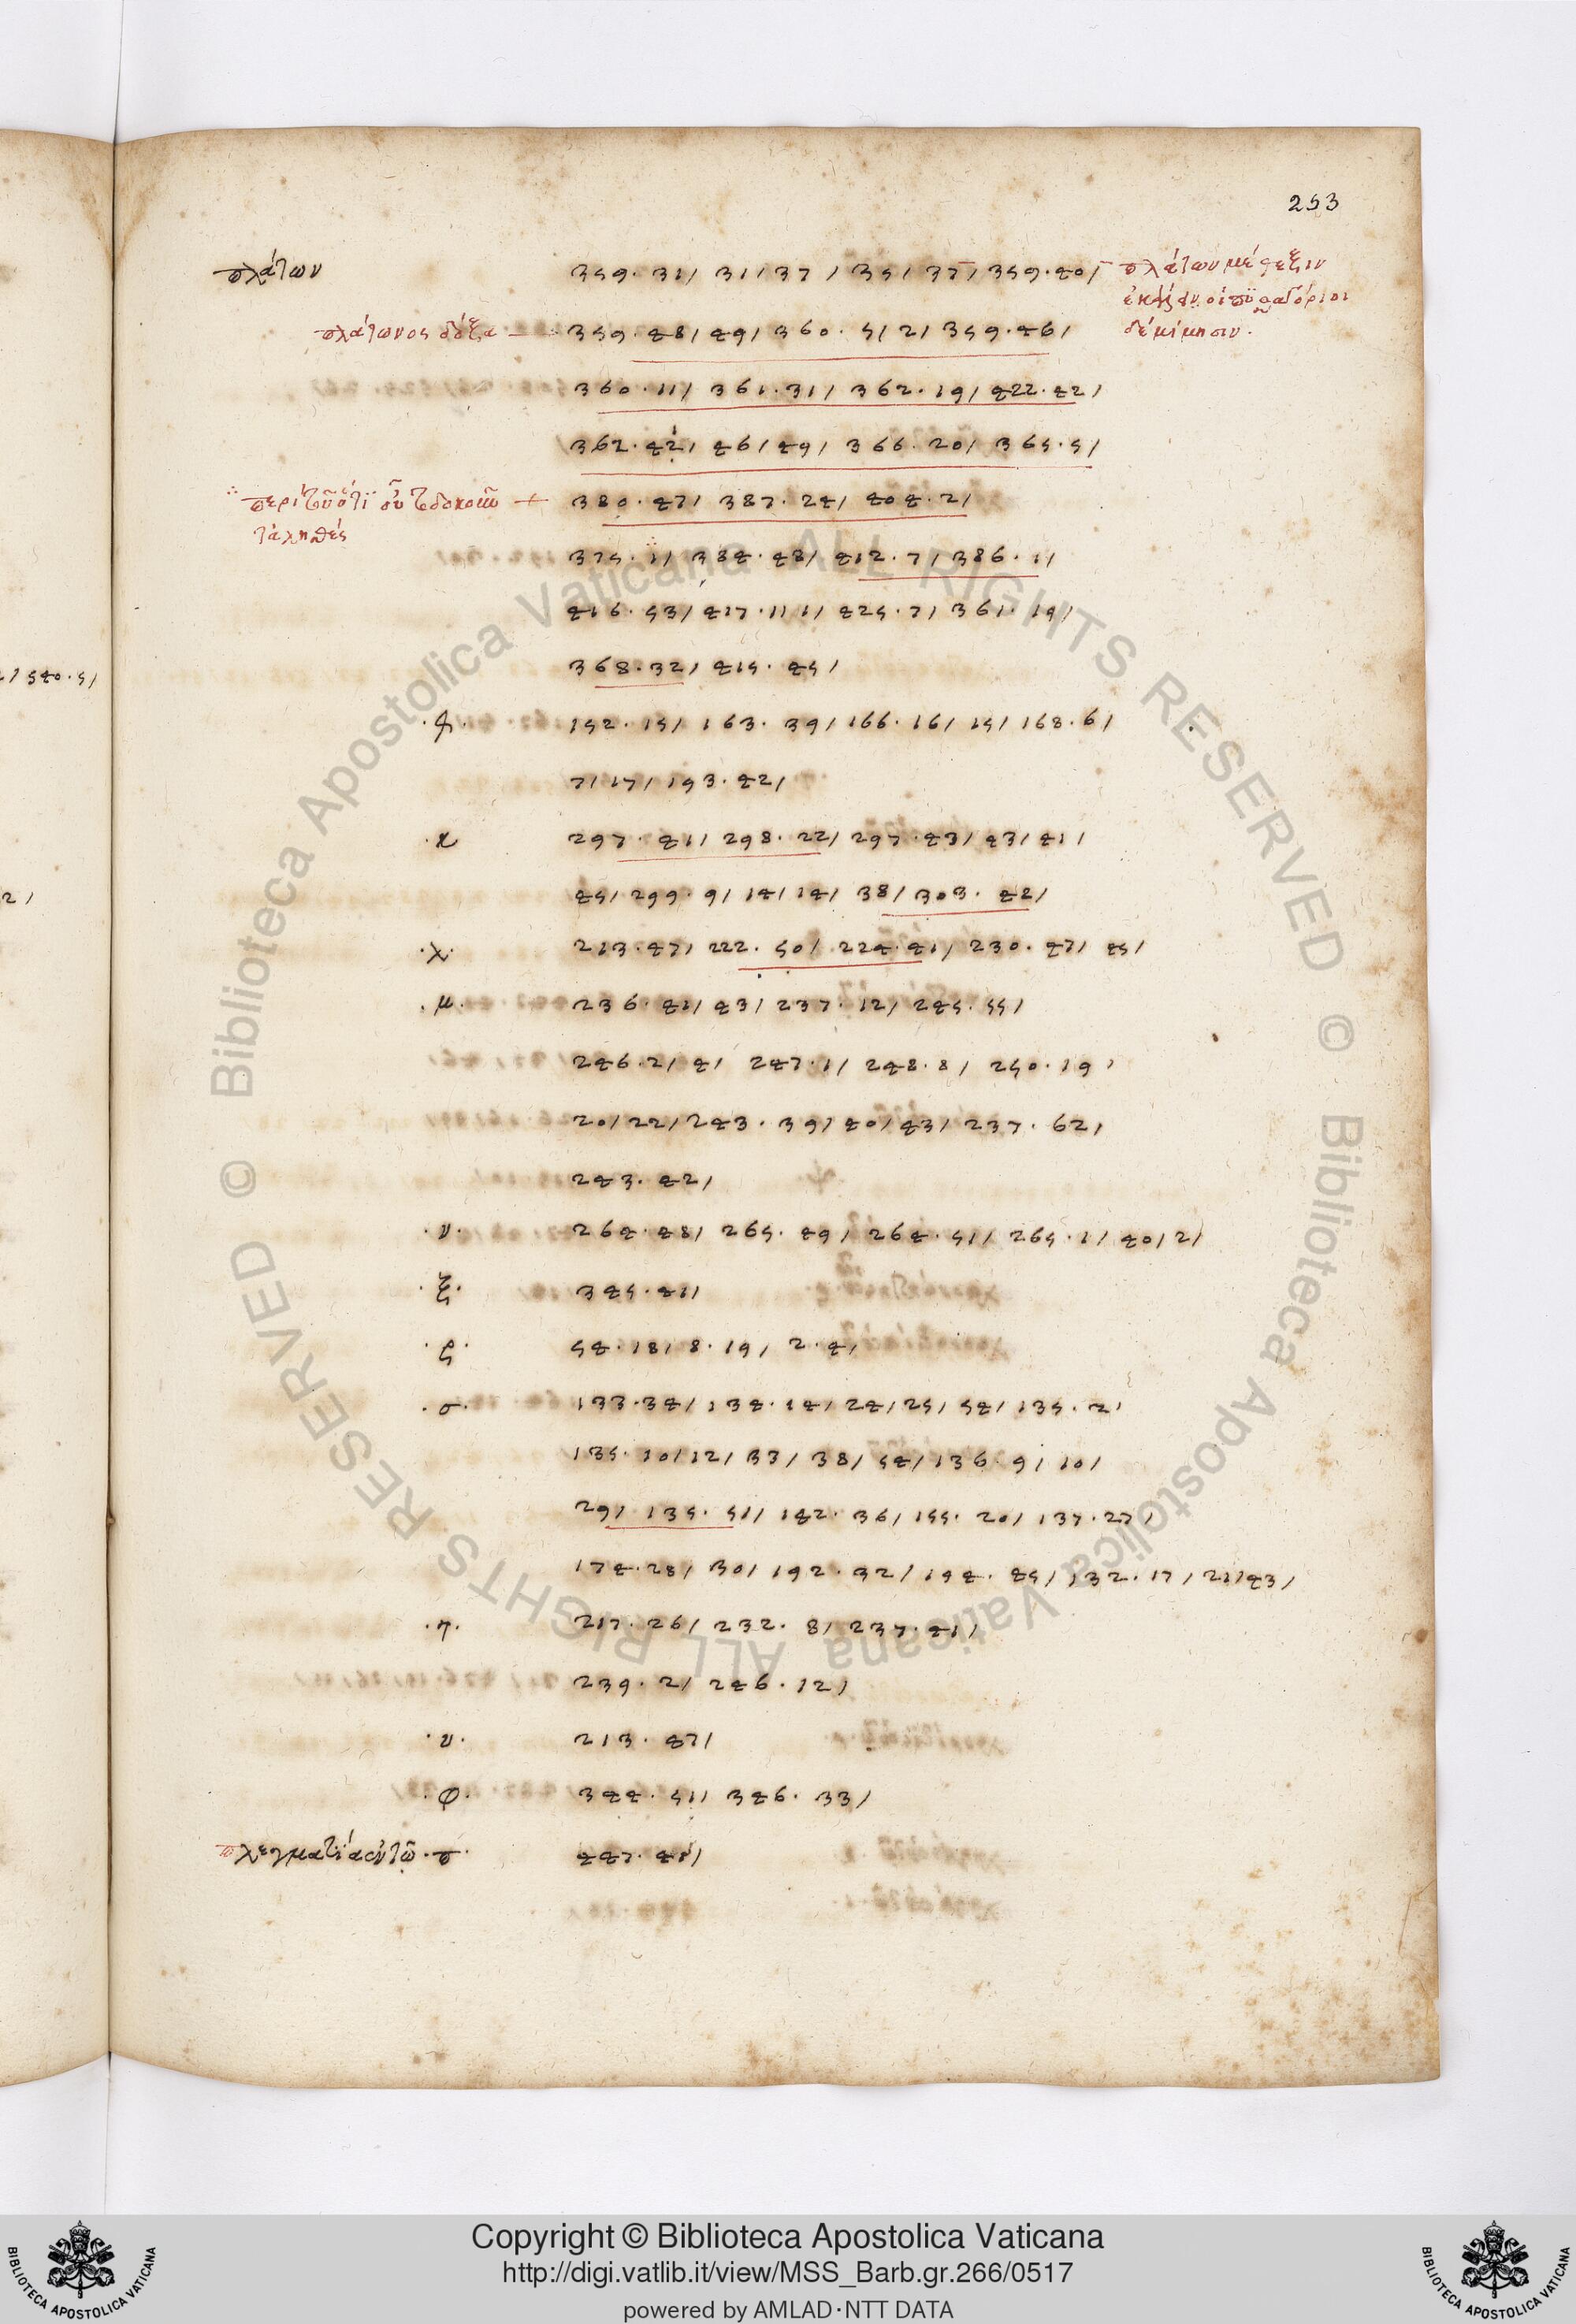 253
πλάτων 359·31/ 31/ 37/ 35/ 37/ 359·40/ πλάτων μέθεξιν
ἐκάλουν οἱ πυθαγόριοι
πλάτωνος δόξα 359·48/ 49/ 360·5/ 2/ 359·46/ δέ μίμησιν.
360·11/ 361·31/ 362·19/ 422·42/
362·42/ 46/ 49/ 366·20/ 365·5/
περὶ τοῦ ὅτι 380·47/ 387·24/ 404·2/
τἀληθές
375·1/ 384·48/ 412·7/ 386·1/
416·53/ 417·11 1/ 425·7/ 361·19/
368·32/ 415·45/
152·15/ 163·39/ 166·16/ 15/ 168·6/
7/ 17/ 193·42/
·κ 297·41/ 298·22/ 297·43/ 43/ 41/
45/ 299·9/ 14/ 14/ 38/ 303·42/
·λ· 213·47/ 222·50/ 224·41/ 230·47/ 45/
·μ· 236·41/ 43/ 237·12/ 245·55/
246·2/ 4/ 247·1/ 248·8/ 250·19/
20/ 22/ 243·39/ 40/ 43/ 237·62/
243·42/
·ν· 264·48/ 265·49/ 264·51/ 265·1/ 40/ 2/
·ξ· 345·41/
·ς· 54·18/ 8·19/ 2·4/
·σ· 133·34/ 134·14/ 24/ 25/ 54/ 135·2/
135·10/ 12/ 33/ 38/ 54/ 136·9/ 10/
29/ 135·51/ 142·36/ 155·20/ 137·27/
174·28/ 30/ 192·32/ 194·45/ 132·17/ 21/ 43/
·τ· 217·26/ 232·8/ 237·41/
239·2/ 246·12/
·υ· 213·47/
·φ· 344·51/ 346·33/
πλεγματία ἐν τῷ ·π· 447·41/
2/ 540·5/
2/
Copyright © Biblioteca Apostolica Vaticana
http://digi.vatlib.it/view/MSS_Barb.gr.266/0517
powered by AMLAD·NTT DATA
BIBLIOTECA APOSTOLICA VATICANA
BIBLIOTECA APOSTOLICA VATICANA
© Biblioteca Apostolica Vaticana ALL RIGHTS RESERVED
© Biblioteca Apostolica Vaticana ALL RIGHTS RESERVED